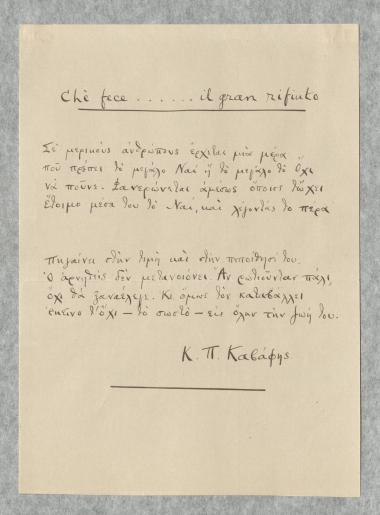 Chè fece ...... il gran rifiuto
Σὲ μερικοὺς ἀνθρώπους ἔρχεται μιὰ μέρα
ποὺ πρέπει τὸ μεγάλο Ναὶ ἢ τὸ μεγάλο τὸ Ὄχι
νὰ ποῦνε. Φανερώνεται ἀμέσως ὅποιος τὤχει
ἕτοιμο μέσα του τὸ Ναί, καὶ λέγοντάς το πέρα
πηγαίνει στὴν τιμὴ καὶ στὴν πεποίθησί του.
Ὁ ἀρνηθεὶς δὲν μετανοιώνει. Ἂν ρωτιοῦνταν πάλι,
ὄχι θὰ ξαναέλεγε. Κι ὅμως τὸν καταβάλλει
ἐκεῖνο τ' ὄχι — τὸ σωστὸ — εἰς ὅλην τὴν ζωή του.
Κ. Π. Καβάφης